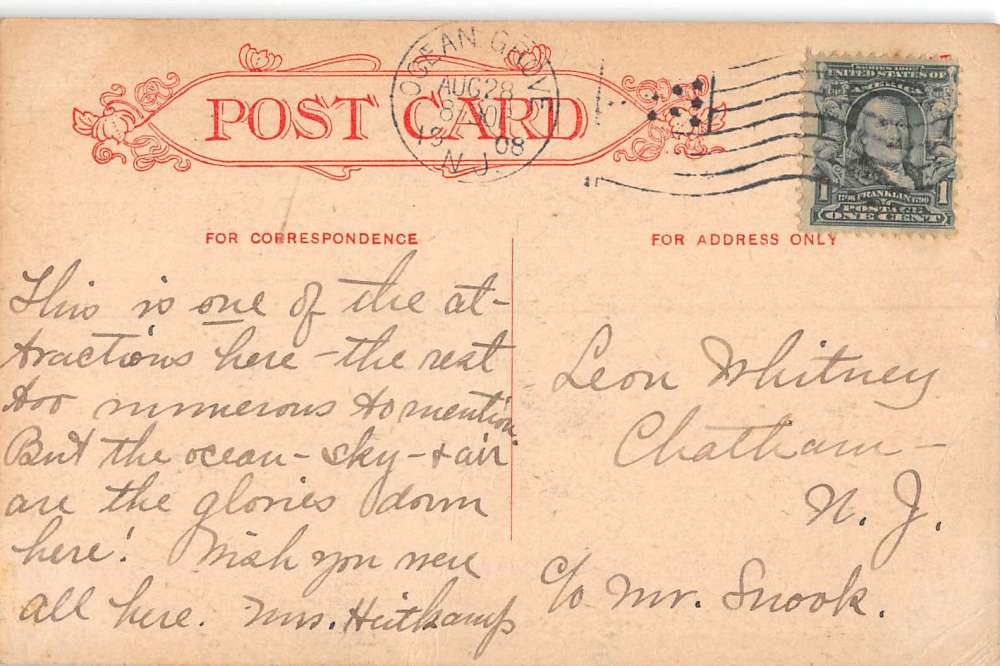 POST CARD
OCEAN GROVE
AUG 28
8 30 P
19 08
N.J.
SERIES 1902
UNITED STATES OF
AMERICA
1 1706 FRANKLIN 1790 1
POSTAGE
ONE CENT
FOR CORRESPONDENCE
FOR ADDRESS ONLY
This is one of the at-
tractions here - the rest
too numerous to mention.
But the ocean - sky - & air
are the glories down
here! Wish you were
all here. Mrs. Heitkamp
Leon Whitney
Chatham -
N. J.
c/o Mr. Snook.